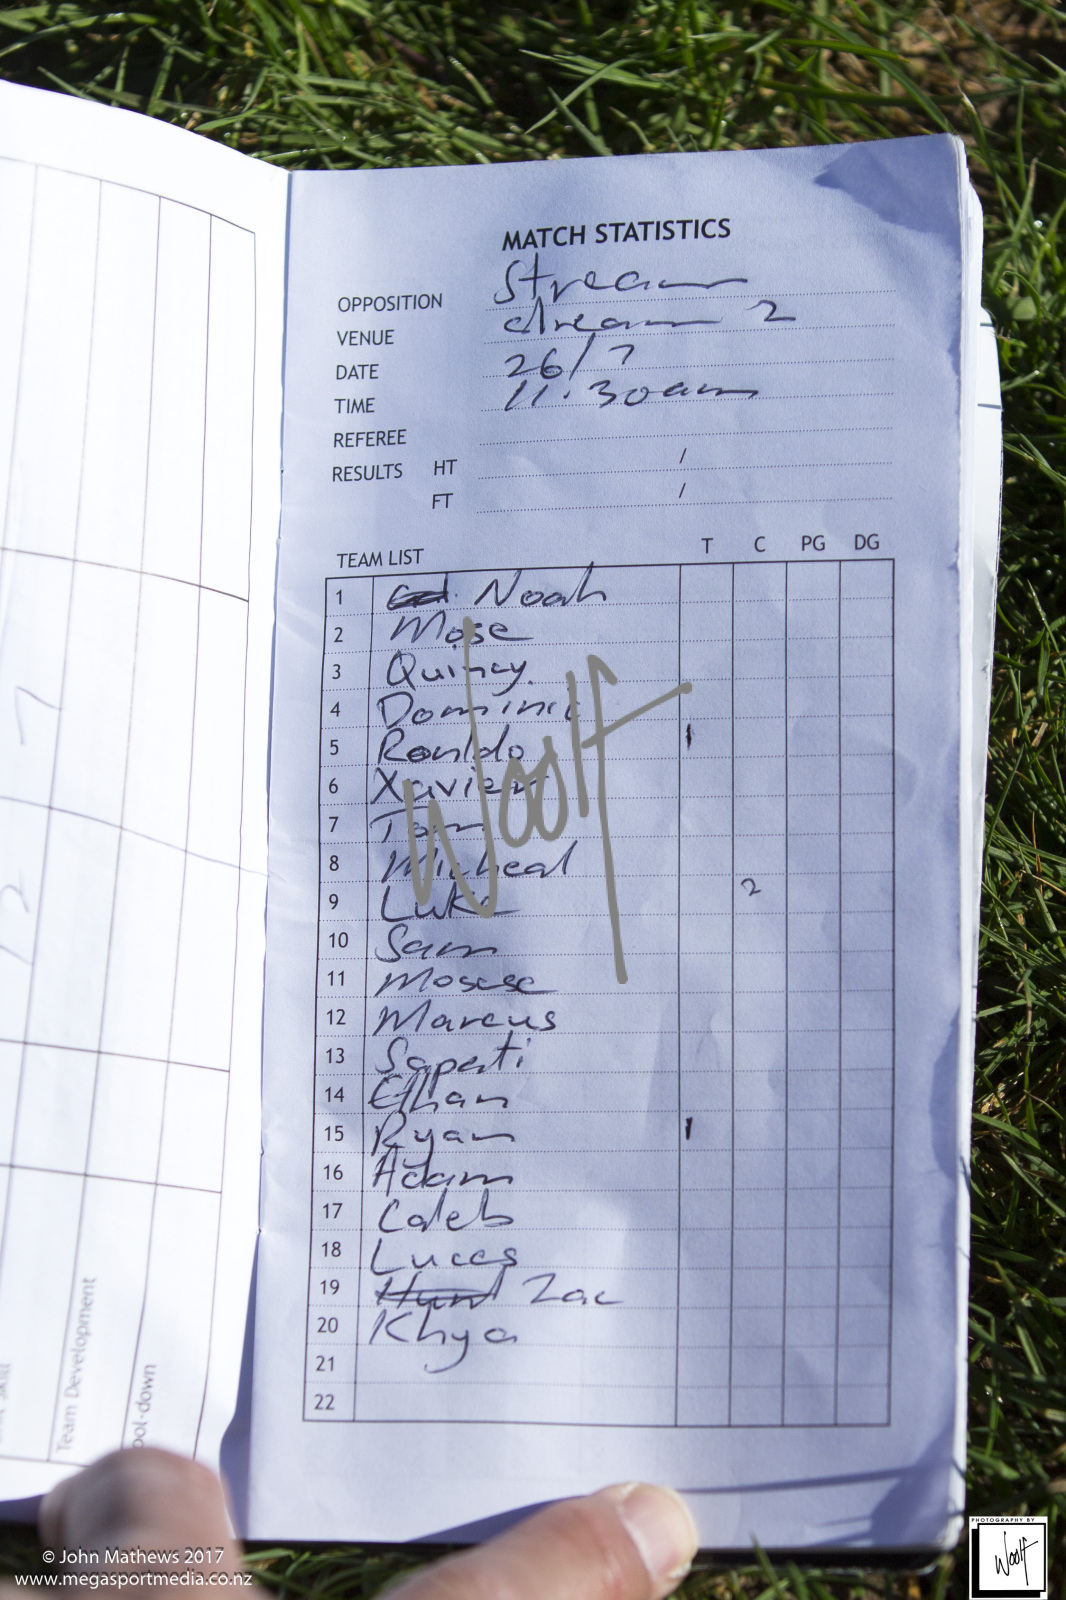 MATCH STATISTICS
OPPOSITION Stream
VENUE stream 2
DATE 26/7
TIME 11.30am
REFEREE
RESULTS HT /
FT /
TEAM LIST T C PG DG
1 Noah
2 Mose
3 Quincy.
4 Dominic
5 Ronldo 1
6 Xavier
7 Tom
8 Micheal
9 Luke 2
10 Sam
11 Mosese
12 Marcus
13 Sapati
14 Ethan
15 Ryan 1
16 Adam
17 Caleb
18 Luccs
19 Zac
20 Khya
21
22
Woolf
Team Development
ool-down
© John Mathews 2017
www.megasportmedia.co.nz
PHOTOGRAPHY BY
Woolf